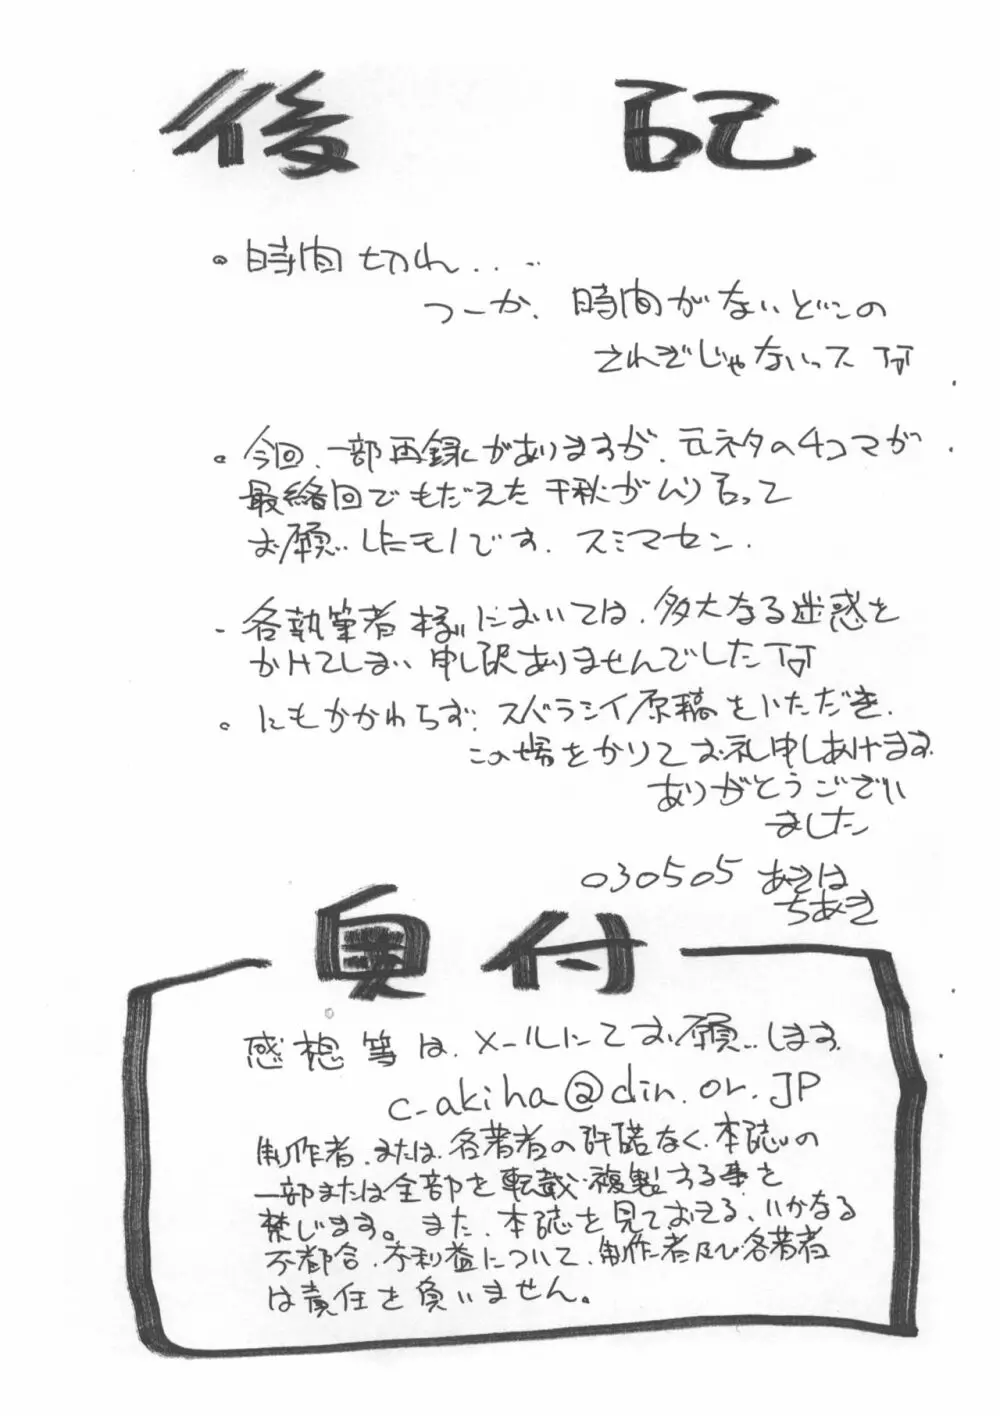 後記
。時間切れ.....
つーか、時間がないどこの
さわぎじゃないって TT
。今回、一部再録がありますが、元ネタの4コマが
最終回でもだえた 千秋がムリ言って
お願いしたモノです。スミマセン.
・各執筆者様においては、多大なる迷惑を
かけてしまい 申し訳ありませんでした TT
。にもかかわらず、スバラシイ原稿をいただき、
この場をかりてお礼申しあげます
ありがとうござい
ました
030505 あきは
ちあき
奥付
感想等は、メールにてお願いします
c-akiha@din.or.JP
制作者、または、各著者の許諾なく、本誌の
一部または全部を転載・複製する事を
禁じます。また、本誌を見ておこる、いかなる
不都合、不利益について、制作者及び各著者
は責任を負いません。